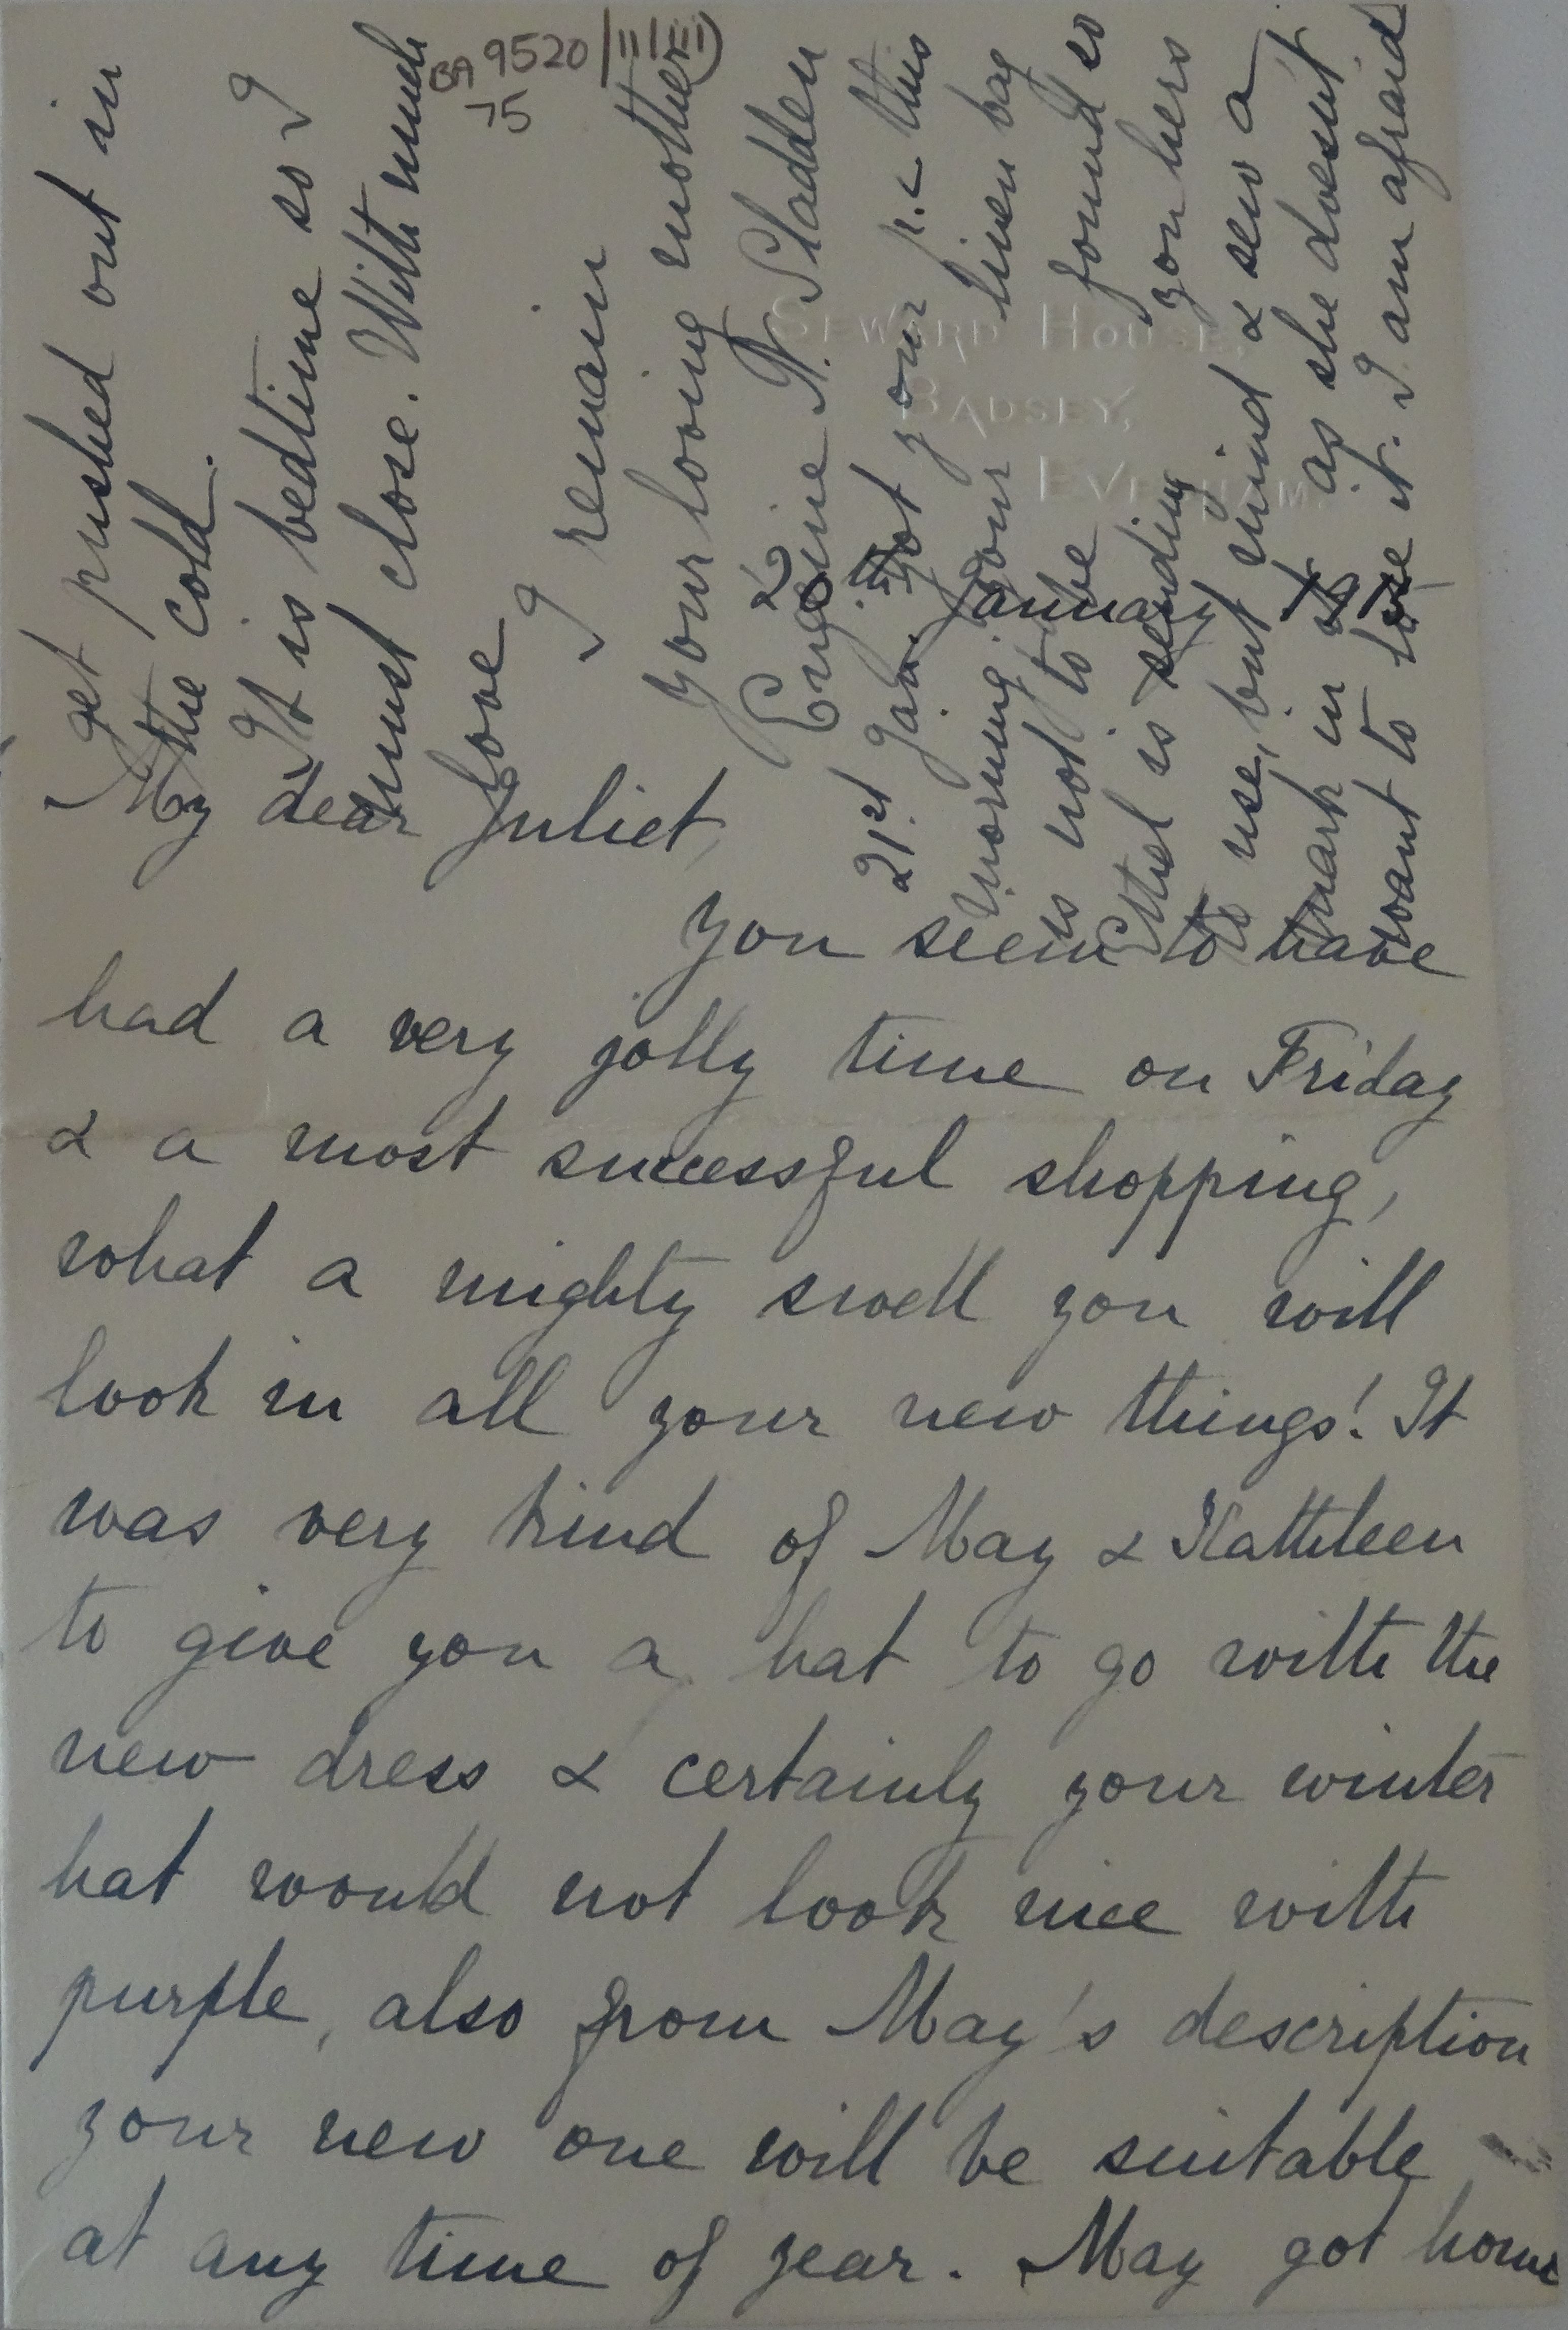 BA 9520/11(iii)
75
SEWARD HOUSE,
BADSEY,
EVESHAM.
20th January
My dear Juliet,
You seem to have
had a very jolly time on Friday
& a most successful shopping,
what a mighty swell you will
look in all your new things! It
was very kind of May & Kathleen
to give you a hat to go with the
new dress & certainly your winter
hat would not look nice with
purple, also from May's description
your new one will be suitable
at any time of year. May got home
get pushed out in
the cold.
It is bedtime so I
must close. With much
love
I remain
Your loving mother
Eugénie N. Sladden
21st Jan. Got your p.c this
morning. Your linen bag
is not to be found so
Ethel is sending you hers
to use, but mind & sew a
mark in it as she doesn't
want to lose it. I am afraid